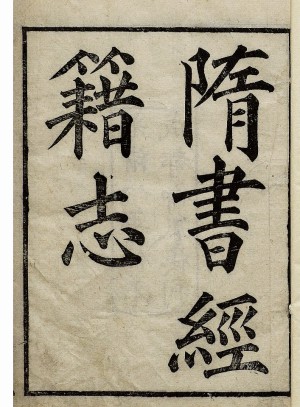 隋書經
籍志